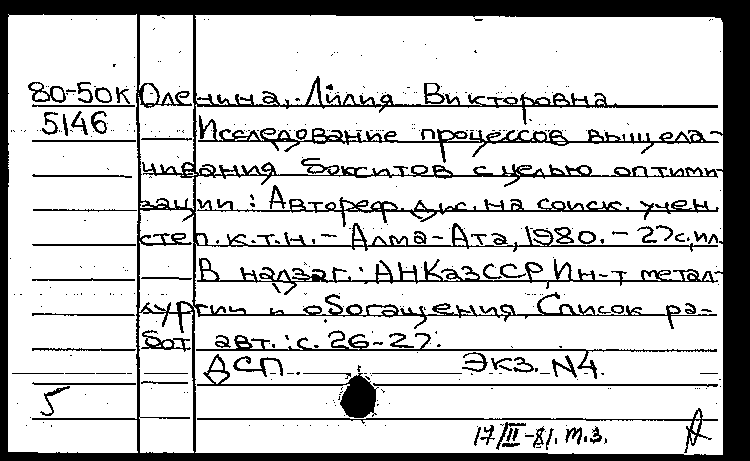 80-50К Оленина, Лилия Викторовна
5146 Исследование процессов выщела-
чивания бокситов с целью оптими-
зации : Автореф. дис. на соиск. учен.
степ. к.т.н. – Алма-Ата, 1980. – 27с, ил.
В надзаг.: АН КазССР, Ин-т метал-
лургии и обогащения. Список ра-
бот авт.: с. 26-27.
ДСП. Экз. N4.
5
17/III-81. т.з.